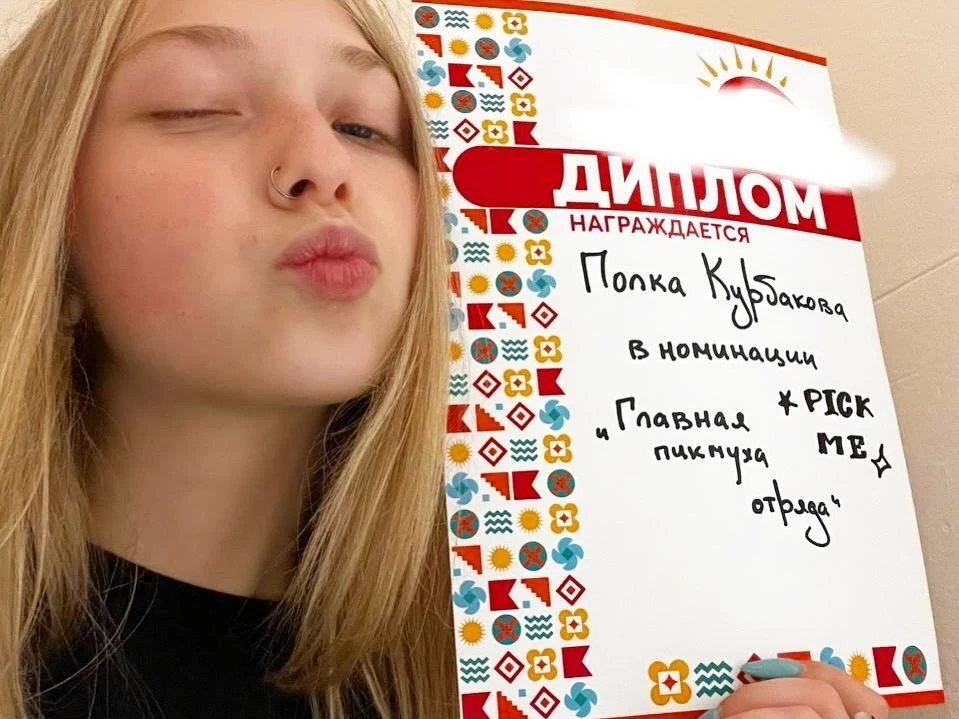 ДИПЛОМ
НАГРАЖДАЕТСЯ
Полка Курбакова
в номинации
„Главная *PICK
пикмуха ME
отряда“